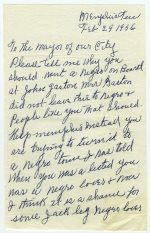 Memphis Tenn
Feb 29 1956
To the Mayor of our City
Please tell me why you
should want a Negro on Board
at John Gaston Mrs Gaston
did not leave this to Negro's
People like you that should
Help memphis instead you
are trying to turn it to
a Negro town I was told
When you was elected you
was a Negro lover &
I think it is a shame for
some Jack leg Negro lover